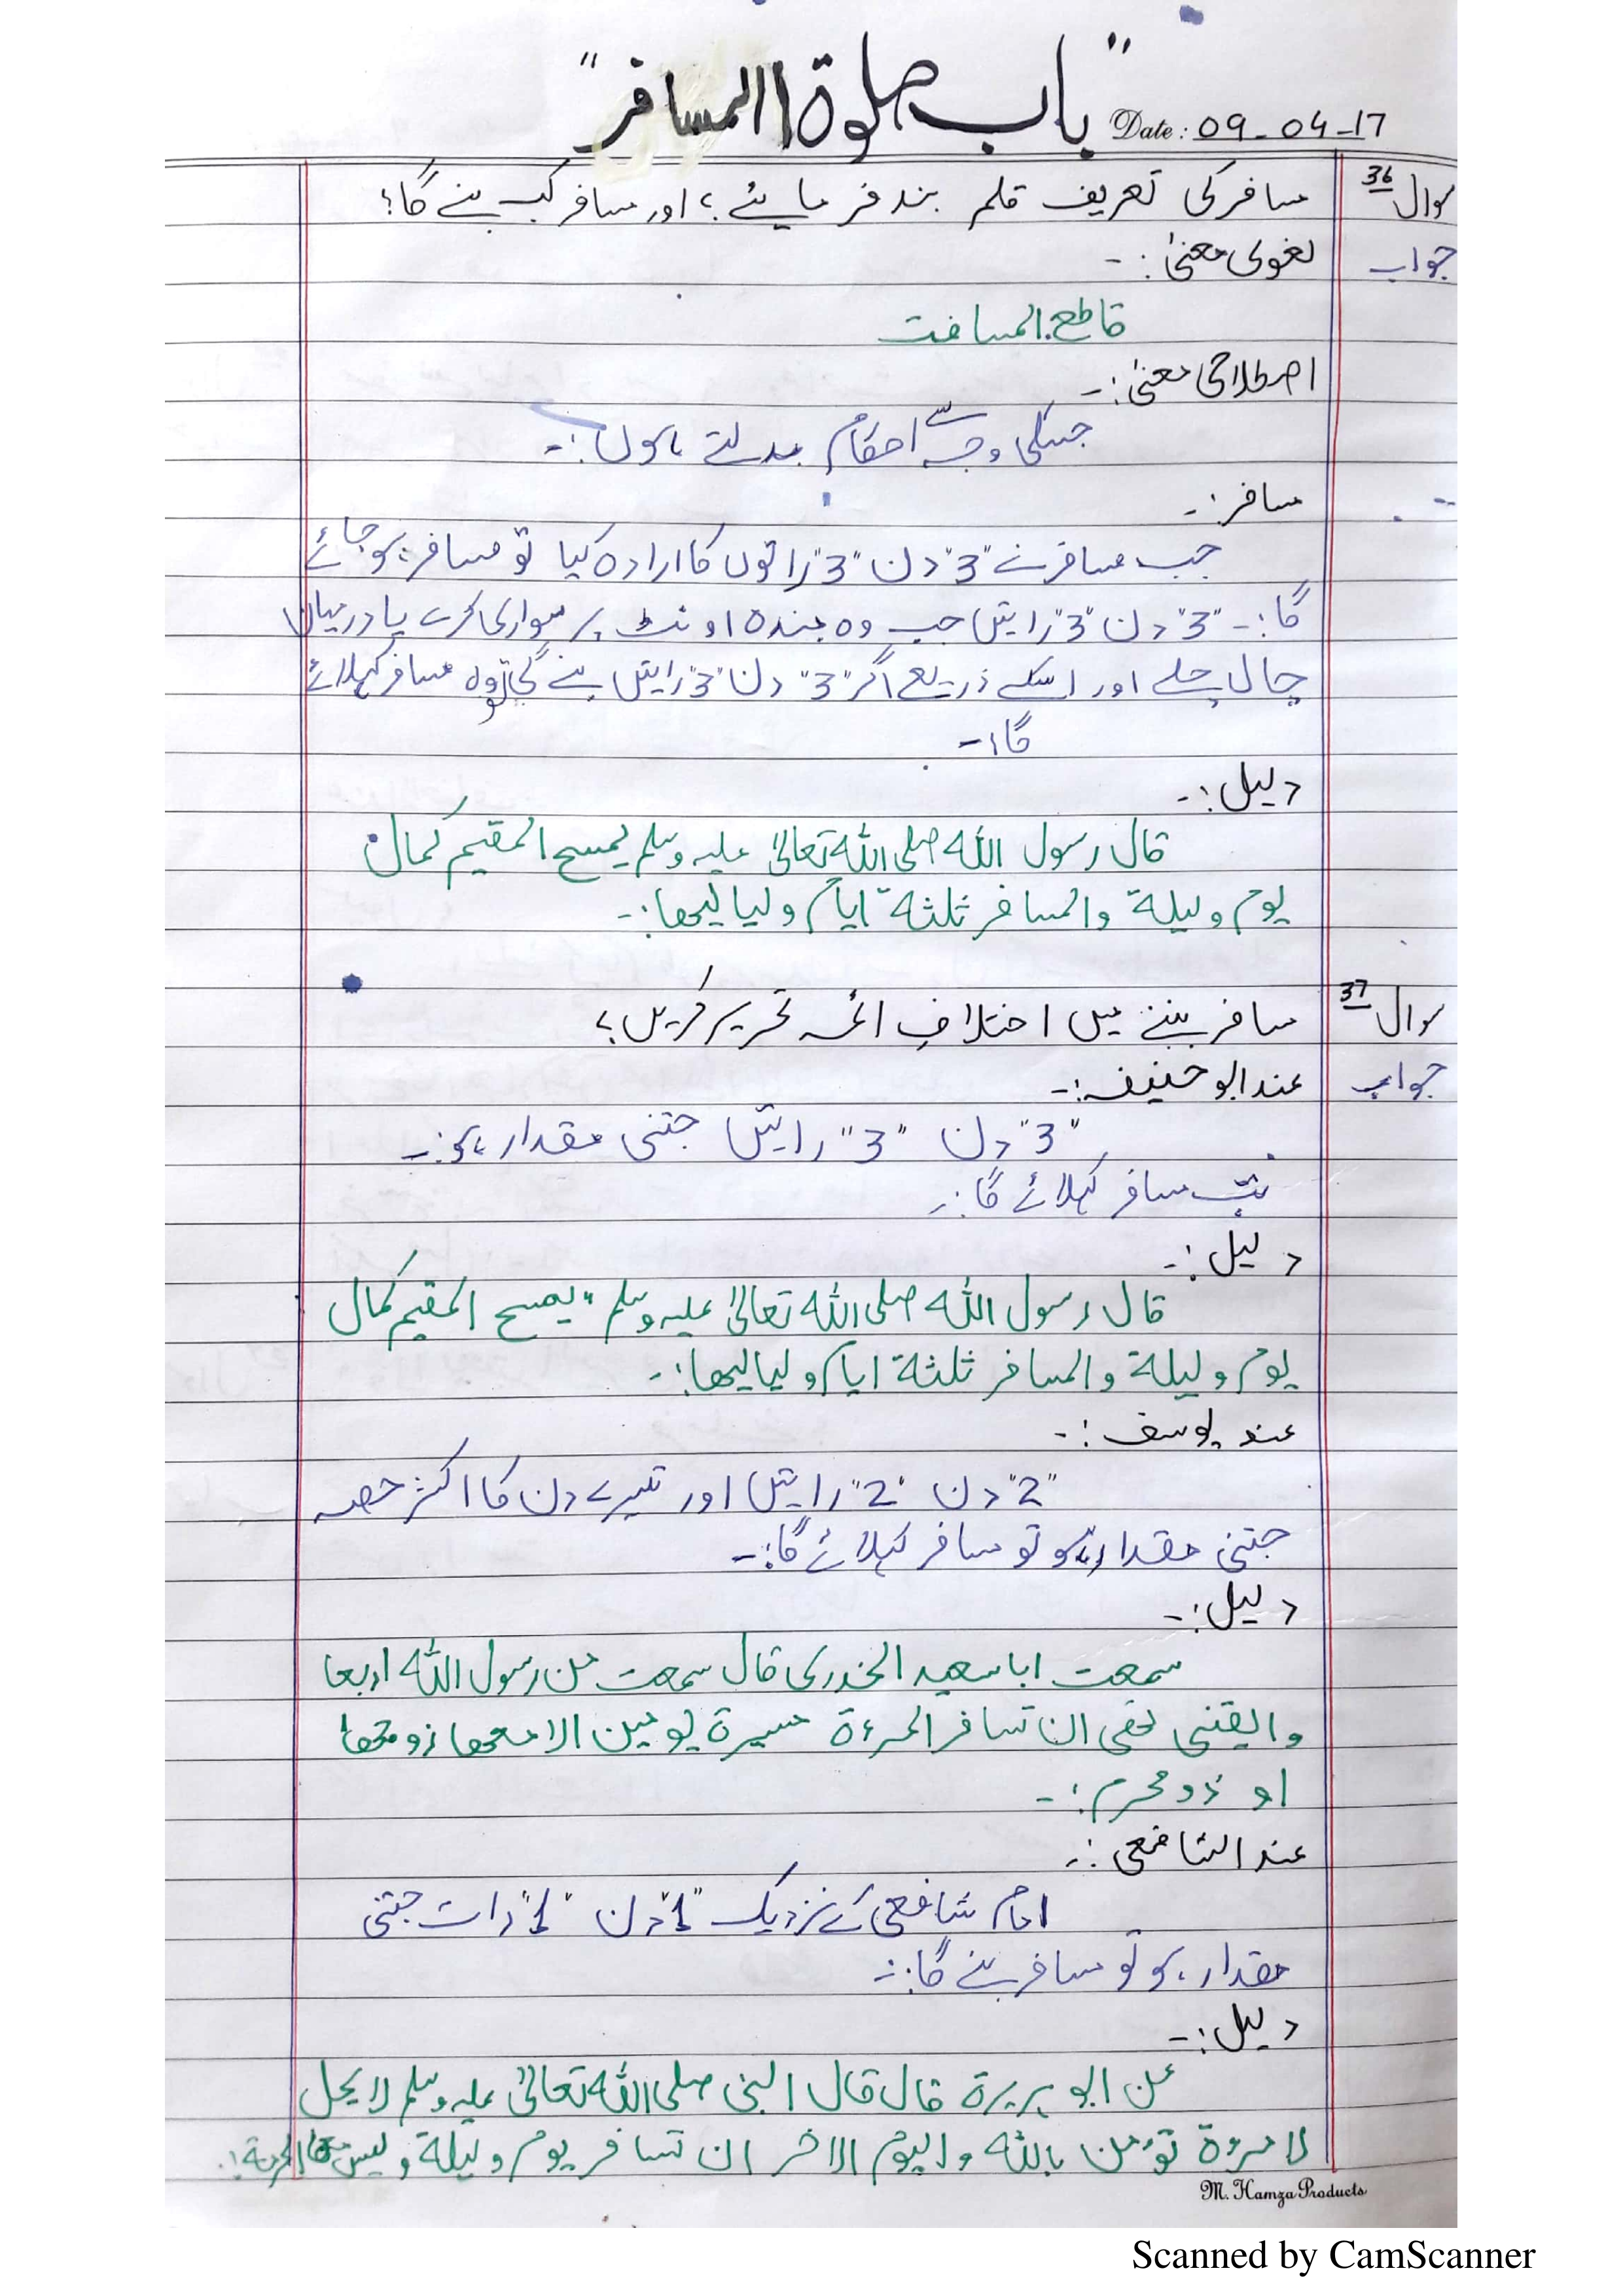 "باب صلوۃ المسافر"
Date: 09-04-17
سوال 36 مسافر کی تعریف قلم بند فرمایئے؟ اور مسافر کب بنے گا؟
جواب لغوی معنیٰ:-
قاطع المسافت
اصطلاحی معنیٰ:-
جسکی وجہ سے احکام بدلتے ہوں:-
مسافر:-
جب مسافر نے "3" دن "3" راتوں کا ارادہ کیا تو مسافر ہو جائے
گا:- "3" دن "3" راتیں جب وہ بندہ اونٹ پر سواری کرے یا درمیان
چال چلے اور اسکے ذریعے اگر "3" دن "3" راتیں بنے گی تو وہ مسافر کہلائے
گا:-
دلیل:-
قال رسول اللہ صلی اللہ تعالیٰ علیہ وسلم یمسح المقیم کمال
یوم ولیلۃ والمسافر ثلثۃ ایام ولیالیھا:-
سوال 37 مسافر بننے میں اختلافِ ائمہ تحریر کریں؟
جواب عند ابو حنیفہ:-
"3" دن "3" راتیں جتنی مقدار ہو:-
تب مسافر کہلائے گا:-
دلیل:-
قال رسول اللہ صلی اللہ تعالیٰ علیہ وسلم "یمسح المقیم کمال
یوم ولیلۃ والمسافر ثلثۃ ایام ولیالیھا:-
عند یوسف:-
"2" دن "2" راتیں اور تیسرے دن کا اکثر حصہ
جتنی مقدار ہو تو مسافر کہلائے گا:-
دلیل:-
سمعت ابا سعید الخدری قال سمعت من رسول اللہ اربعا
والقنی نھی ان تسافر المرءۃ مسیرۃ یومین الا معھا زوجھا
او ذو محرم:-
عند الشافعی:-
امام شافعی کے نزدیک "1" دن "1" رات جتنی
مقدار ہو تو مسافر بنے گا:-
دلیل:-
عن ابو ہریرۃ قال قال النبی صلی اللہ تعالیٰ علیہ وسلم لا یحل
لامرءۃ تؤمن باللہ والیوم الاخر ان تسافر یوم ولیلۃ ولیس معھا حرمۃ:-
M. Hamza Products
Scanned by CamScanner